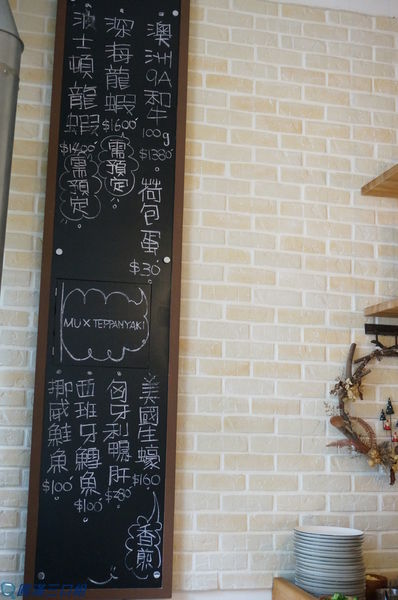 澳洲9A和牛100g $1380
荷包蛋 $30
深海龍蝦 $1600 需預定
波士頓龍蝦 $1400 需預定
MU X TEPPANYAKI
美國生蠔 $160
香煎
匈牙利鴨肝 $280
西班牙鱈魚 $100
挪威鮭魚 $100